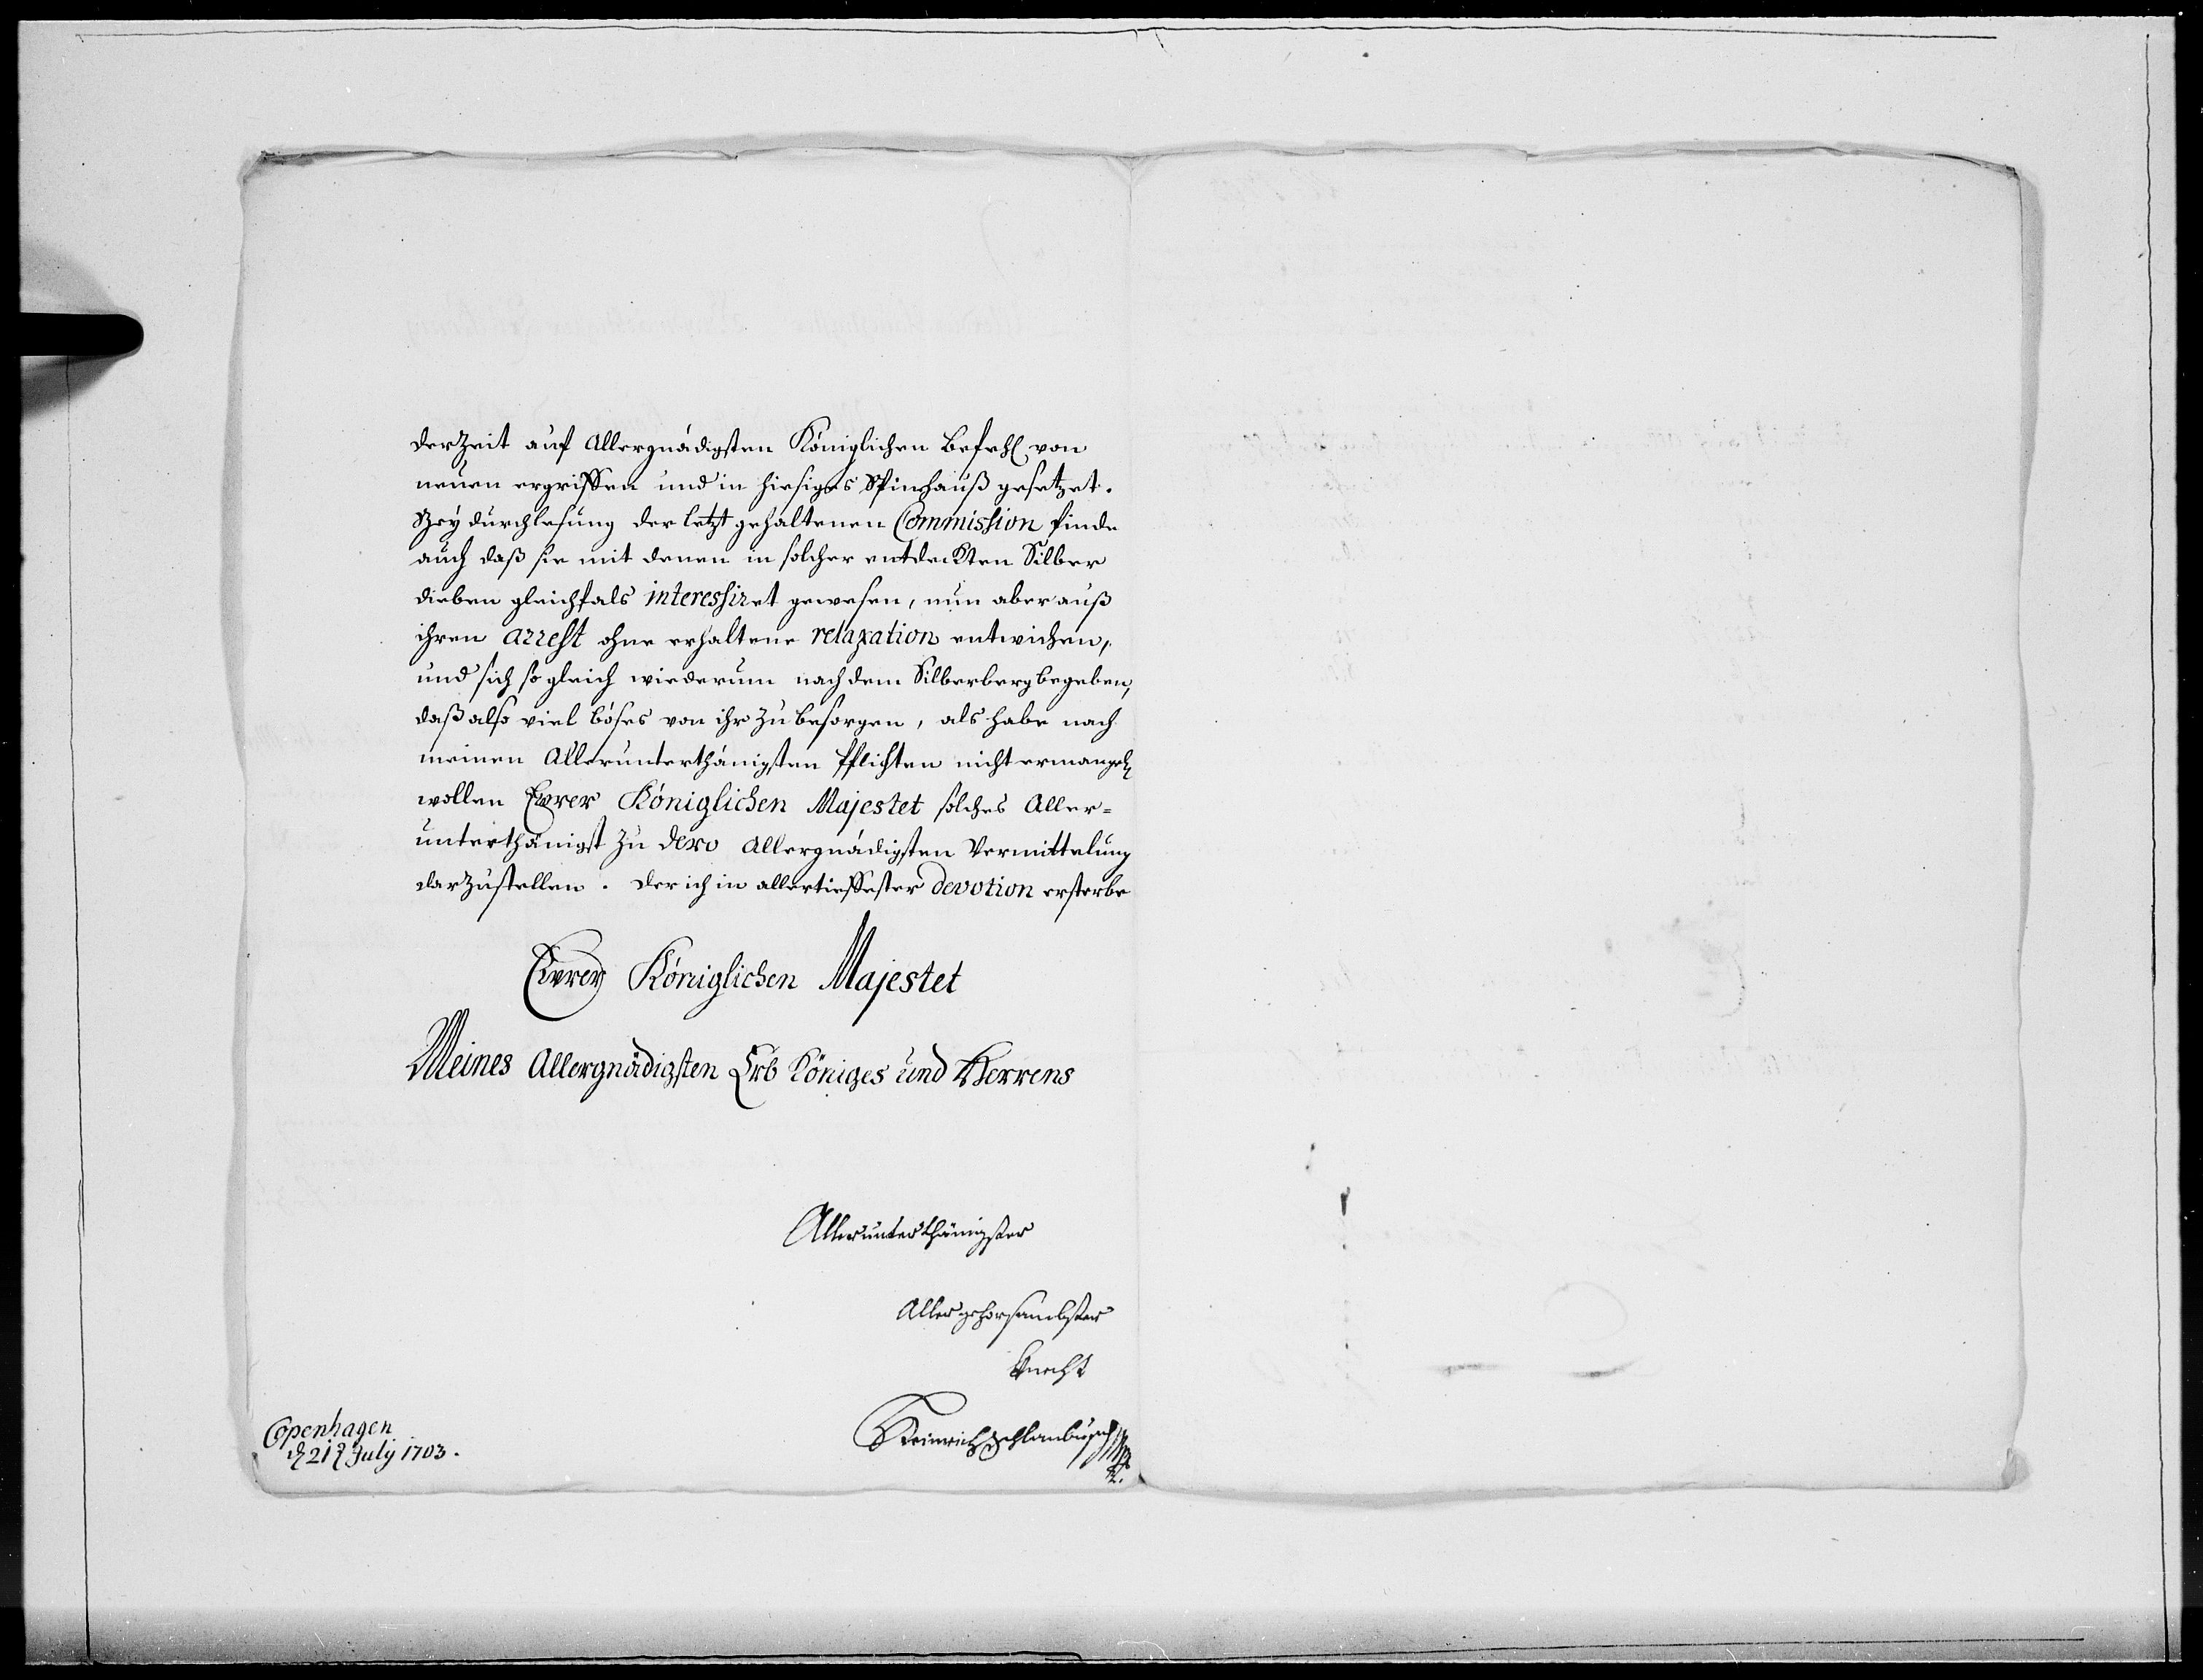 derzeit auf Allergnädigsten Königlichen Befehl von
neuen ergriffen und in hiesiges Spinhauß gesetzet.
Bey durchlesung der letzt gehaltenen Commission finde
auch daß sie mit denen in solcher entdeckten Silber
dieben gleichfals interessiret gewesen, nun aber auß
ihren arrest ohne erhaltene relaxation entwichen,
und sich so gleich wiederum nach dem Silberberg begeben,
daß also viel böses von ihr zu besorgen, als habe nach
meinen Allerunterthänigsten Pflichten nicht ermangeln
wollen Ewrer Königlichen Majestet solches Aller=
unterthänigst zu dero Allergnädigsten Vermittelung
darzustellen. Der ich in allertieffester devotion ersterbe
Ewrer Königlichen Majestet
Meines Allergnädigsten Erb Königes und Herrens
Allerunterthänigster
Allergehorsambster
Knecht
Heinrich Schlanbusch
Copenhagen
d 21 July 1703.